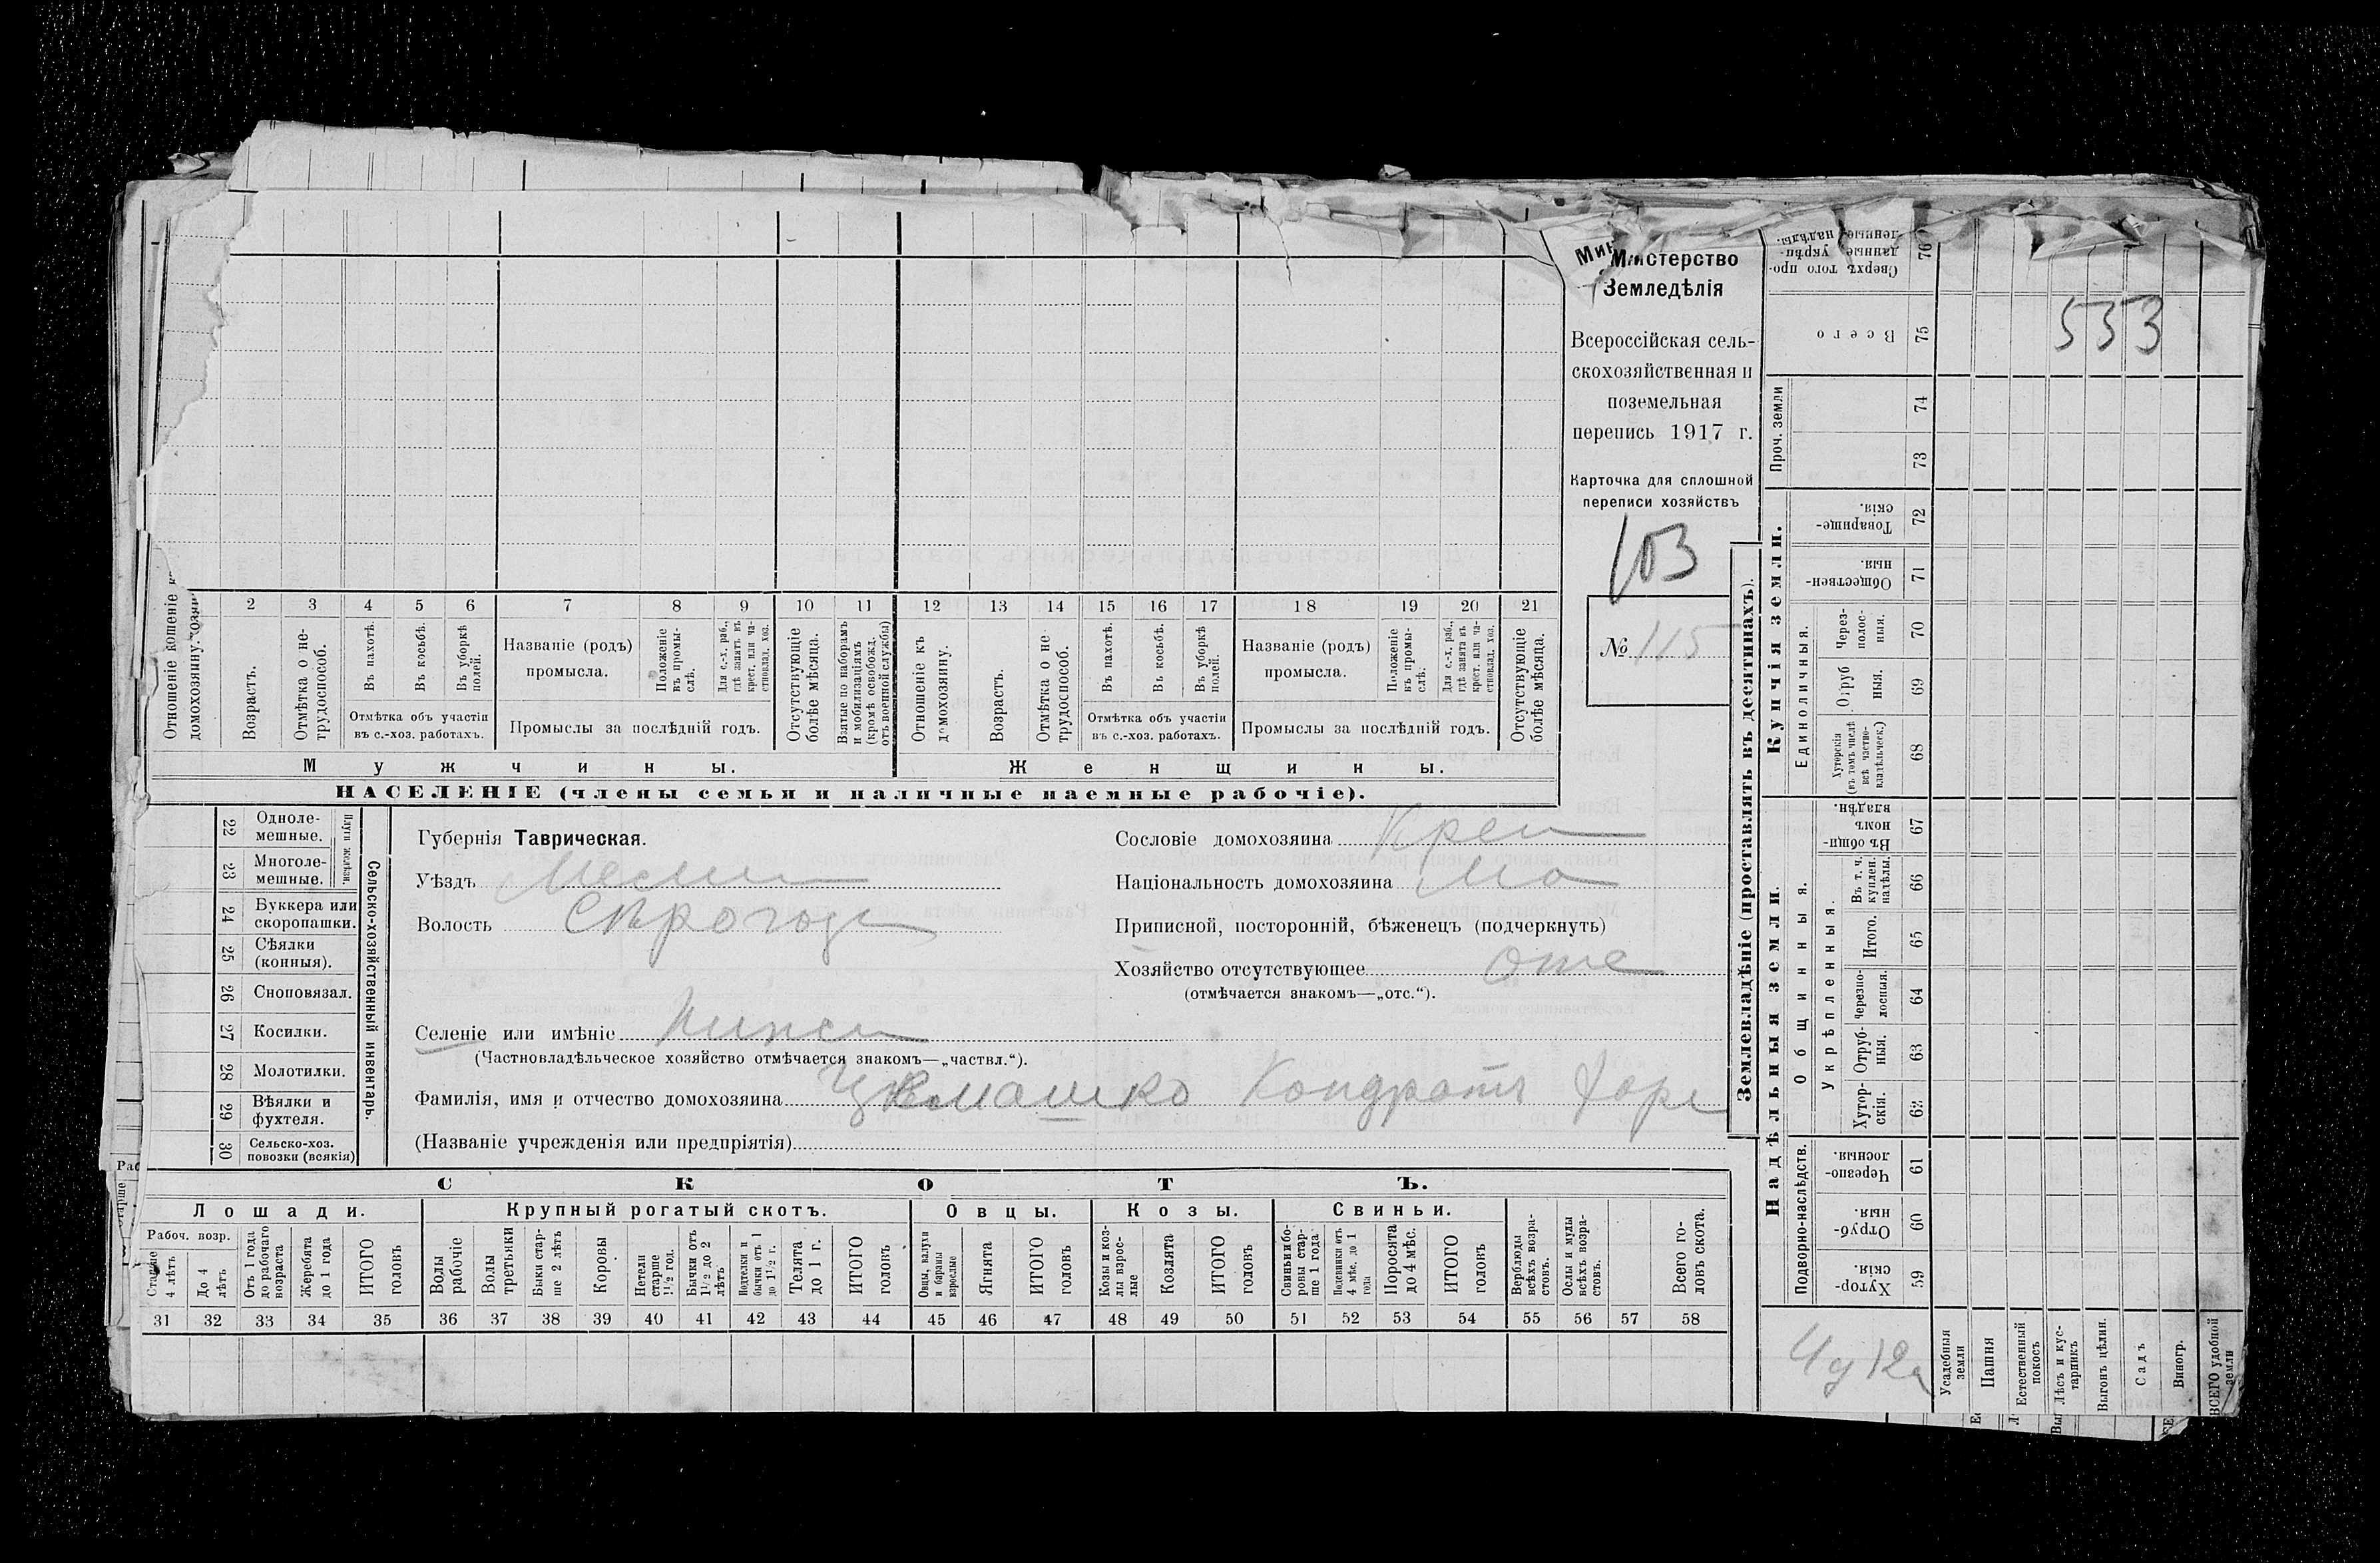 Министерство
Земледѣлія
Всероссійская сель-
скохозяйственная и
поземельная
перепись 1917 г.
Карточка для сплошной
переписи хозяйствъ
103
№ 115
533
2 3 4 5 6 7 8 9 10 11 12 13 14 15 16 17 18 19 20 21
Отношеніе къ домохозяину.
Возрастъ.
Отмѣтка о не-
трудоспособ.
Въ пахотѣ.
Въ косьбѣ.
Въ уборкѣ
полей.
Отмѣтка объ участіи
въ с.-хоз. работахъ.
Названіе (родъ)
промысла.
Положеніе
въ промы-
слѣ.
Для с.-х. раб.,
гдѣ занятъ въ
крест. или ча-
стновлад. хоз.
Промыслы за послѣдній годъ.
Отсутствующіе
болѣе мѣсяца.
Взятые по наборамъ
и мобилизаціямъ
(кромѣ освобожд.
отъ военной службы)
Отношеніе къ
домохозяину.
Возрастъ.
Отмѣтка о не
трудоспособ.
Въ пахотѣ.
Въ косьбѣ.
Въ уборкѣ
полей.
Отмѣтка объ участіи
въ с.-хоз. работахъ.
Названіе (родъ)
промысла.
Положеніе
въ промы-
слѣ.
Для с.-х. раб.,
гдѣ занята въ
крест. или ча-
стновлад. хоз.
Промыслы за послѣдній годъ.
Отсутствующіе
болѣе мѣсяца.
Мужчины.
Женщины.
НАСЕЛЕНІЕ (члены семьи и наличные наемные рабочіе).
Сельско-хозяйственный инвентарь.
22 Одноле-
мешные.
23 Многоле-
мешные.
24 Буккера или
скоропашки.
25 Сѣялки
(конныя).
26 Сноповязал.
27 Косилки.
28 Молотилки.
29 Вѣялки и
фухтеля.
30 Сельско-хоз.
повозки (всякія)
Губернія Таврическая.
Уѣздъ Мелит
Волость Сѣрогоз
Селеніе или имѣніе Нижн
(Частновладѣльческое хозяйство отмѣчается знакомъ—„частвл.“).
Фамилія, имя и отчество домохозяина Кондратъ
(Названіе учрежденія или предпріятія)
Сословіе домохозяина Крест
Національность домохозяина Мо
Приписной, посторонній, бѣженецъ (подчеркнуть)
Хозяйство отсутствующее Отс
(отмѣчается знакомъ—„отс.“).
СКОТЪ.
Лошади.
Крупный рогатый скотъ.
Овцы.
Козы.
Свиньи.
Рабоч. возр.
Старше
4 лѣтъ
До 4
лѣтъ
Отъ 1 года
до рабочаго
возраста
Жеребята
до 1 года
ИТОГО
головъ
Волы
рабочіе
Волы
третьяки
Быки стар-
ше 2 лѣтъ
Коровы
Нетели
старше
1½ год.
Бычки отъ
1½ до 2
лѣтъ
Подтелки и
бычки отъ 1
до 1½ г.
Телята
до 1 г.
ИТОГО
головъ
Овцы, валухи
и бараны
взрослые
Ягнята
ИТОГО
головъ
Козы и коз-
лы взрос-
лые
Козлята
ИТОГО
головъ
Свиньи бо-
ровы стар-
ше 1 года
Подсвинки отъ
4 мѣс. до 1
года
Поросята
до 4 мѣс.
ИТОГО
головъ
Верблюды
всѣхъ возра-
стовъ.
Ослы и мулы
всѣхъ возра-
стовъ.
Всего го-
ловъ скота.
31 32 33 34 35 36 37 38 39 40 41 42 43 44 45 46 47 48 49 50 51 52 53 54 55 56 57 58
Землевладѣніе (проставлять въ десятинахъ).
Купчія земли.
Надѣльныя земли.
Проч. земли
Сверхъ того про-
данные укрѣп-
ленные надѣлы.
76
Всего
75
74
73
Товарище-
скія.
72
Обществен-
ныя.
71
Единоличныя.
Через-
полос-
ныя.
70
Отруб
ныя.
69
Хуторскія
(въ томъ числѣ
всѣ частно-
владѣльческ.)
68
Общинныя.
Въ общи-
номъ
владѣн.
67
Укрѣпленныя.
Въ т. ч.
куплен.
надѣлы.
66
Итого.
65
Черезпо-
лосныя.
64
Отруб-
ныя.
63
Хутор-
скія.
62
Подворно-наслѣдств.
Черезпо-
лосныя.
61
Отруб-
ныя.
60
Хутор-
скія.
59
Усадебныя
земли
Пашня
Естественный
покосъ
Лѣсъ и кус-
тарникъ
Выгонъ цѣлин.
Садъ
Виногр.
ВСЕГО удобной
земли